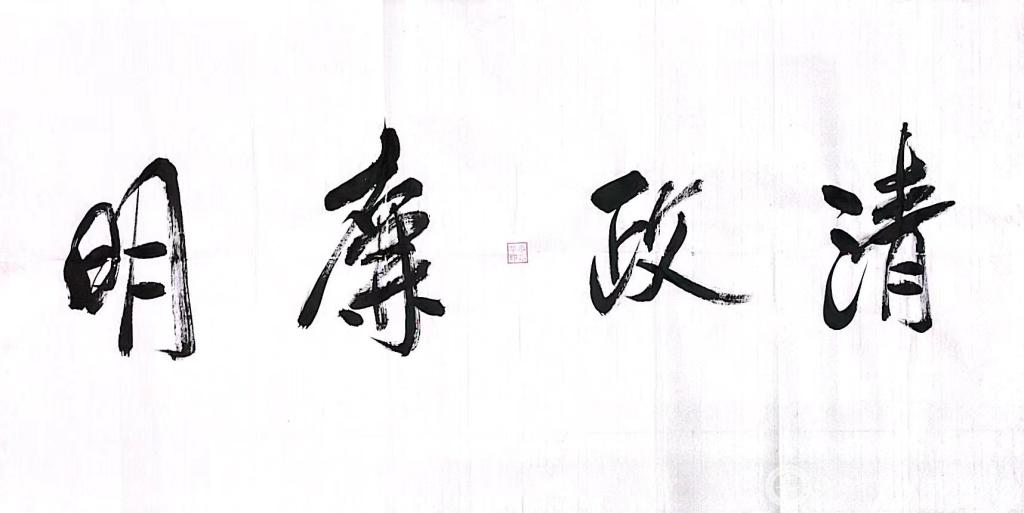 清政廉明